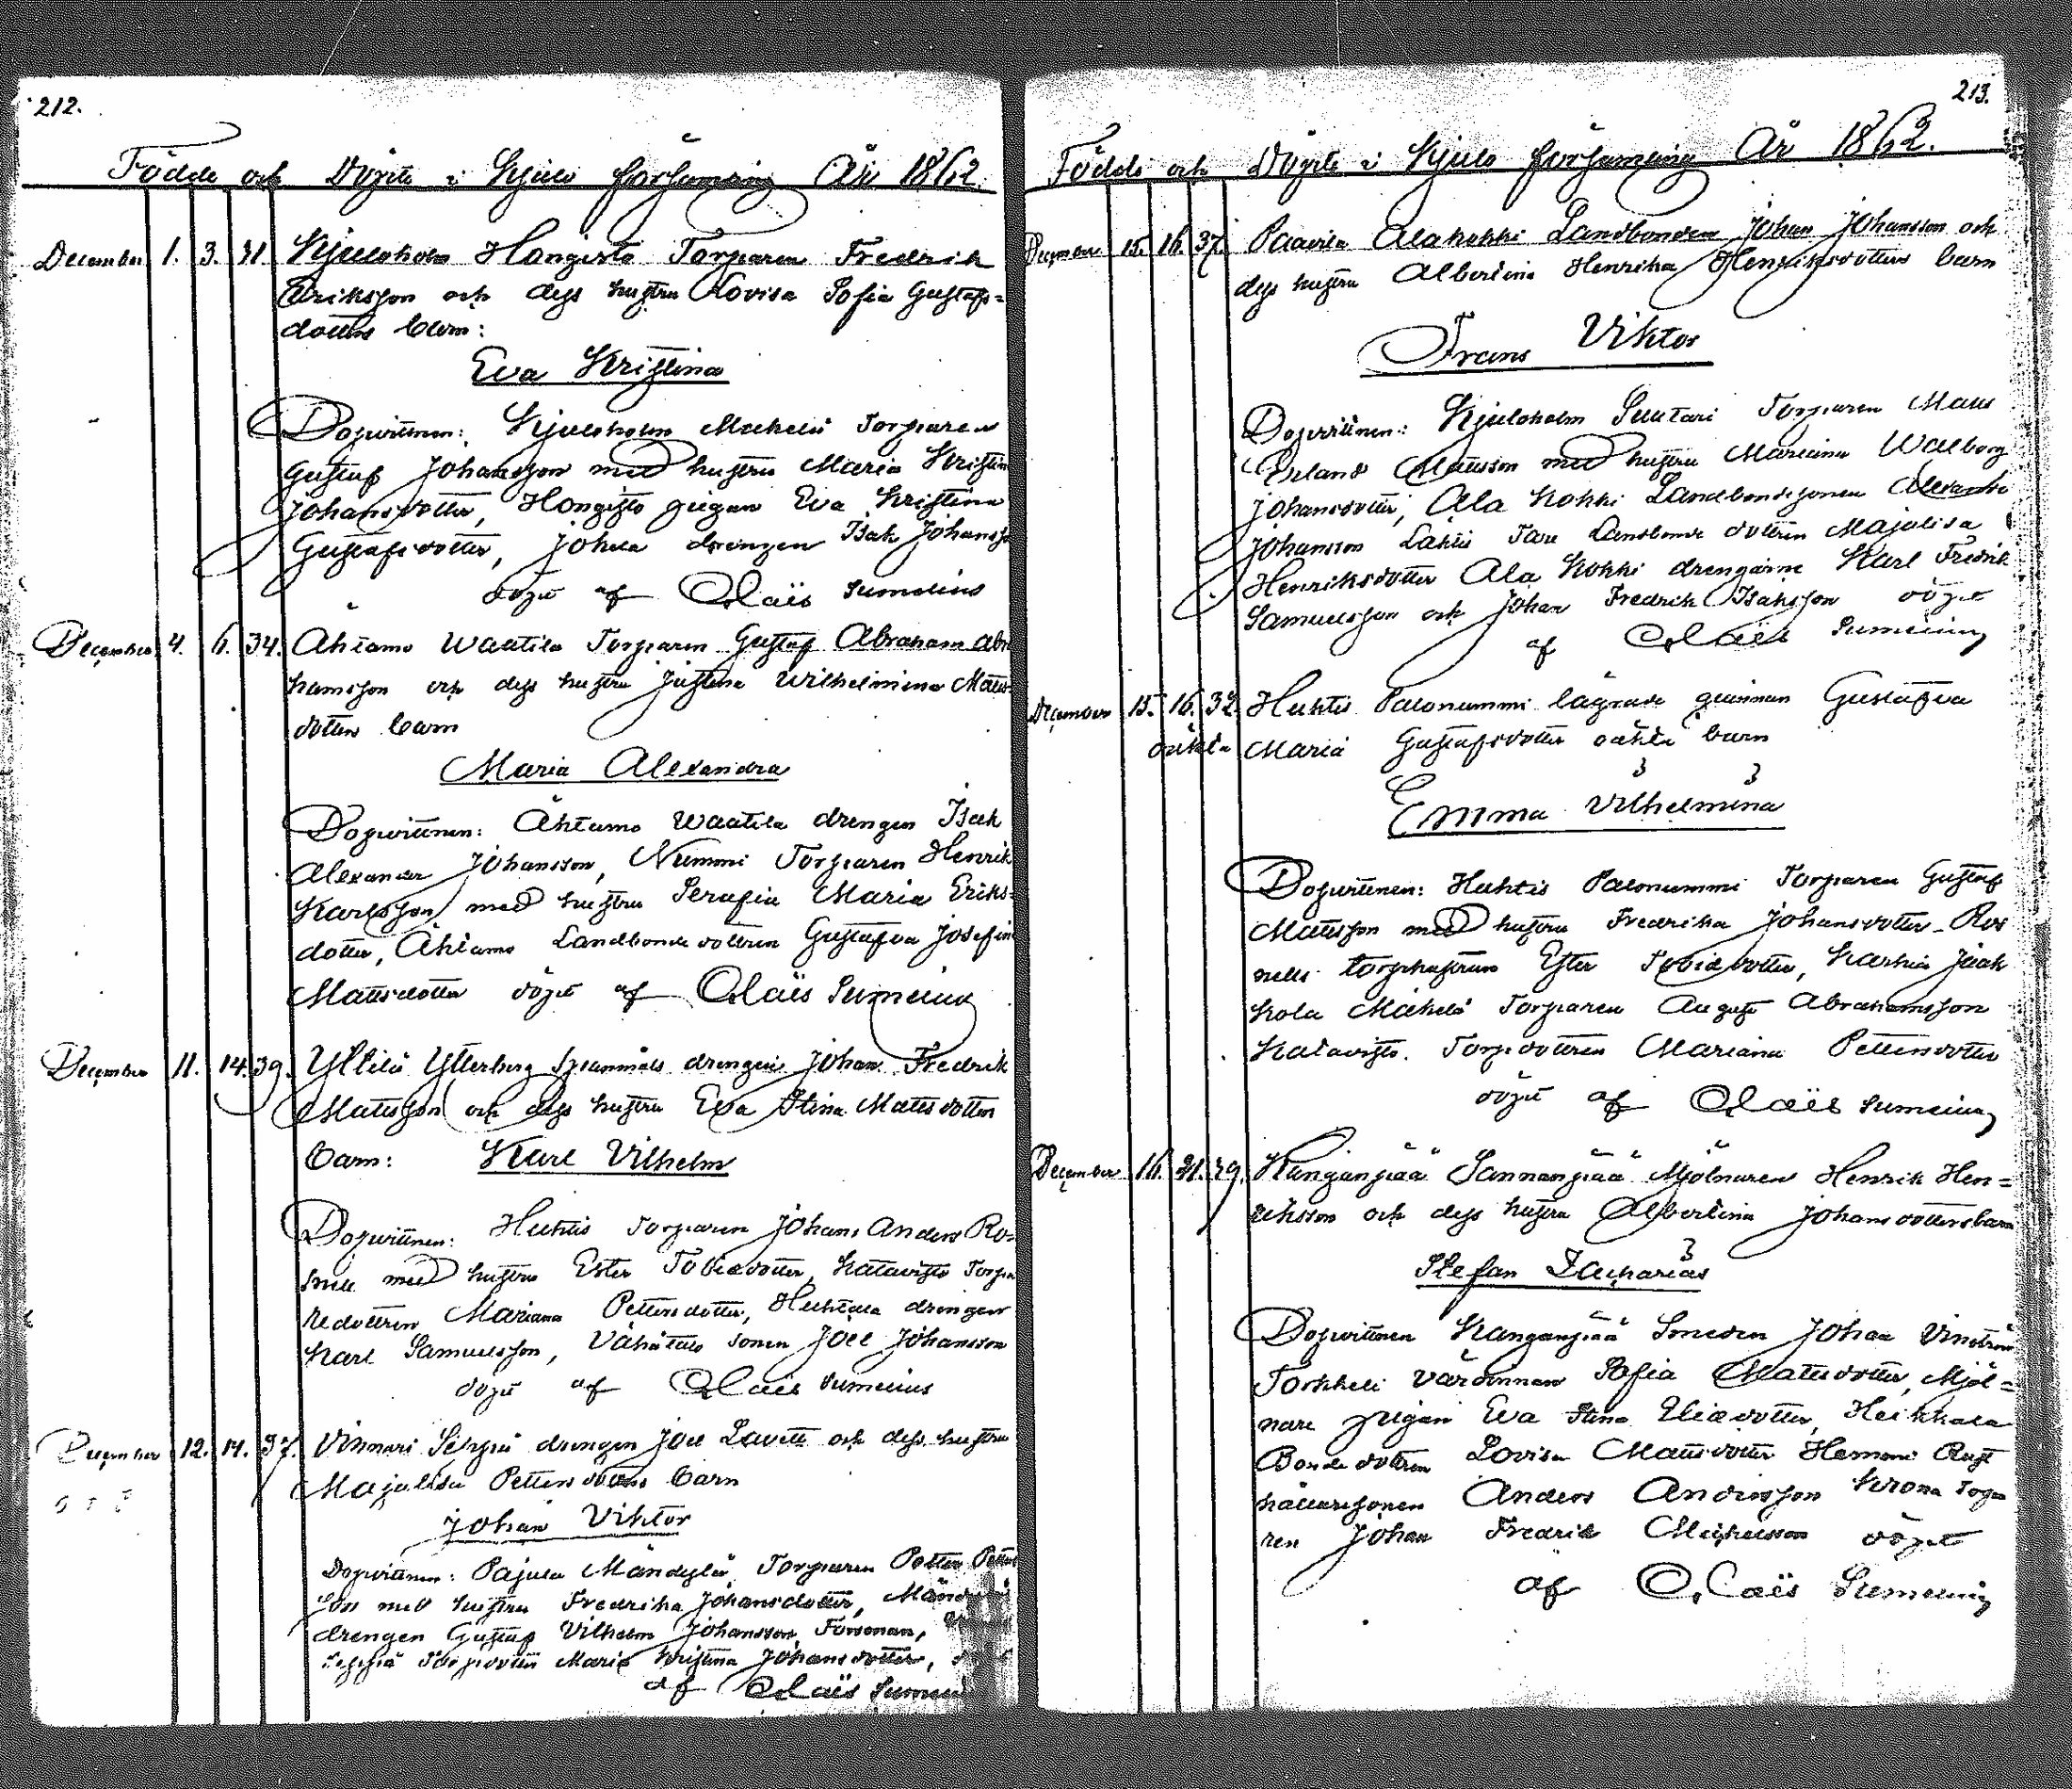 212.
Födde och Döpte i Kjulo församling År 1862.
December 1. 3. 31. Kjuloholm Hongisto Torparen Fredrik
Eriksson och dess hustru Lovisa Sofia Gustafs=
dotters barn:
Eva Kristina
Dopvittnen: Kjuloholm Mäkelä Torparen
Gustaf Johansson med hustru Maria Kristin
Johansdotter, Hongisto pigan Eva Kristina
Gustafsdotter, drengen Isak Johansso
döpt af Claës Sumelius
December 4. 6. 34. Ahtamo Waatila Torparen Gustaf Abraham Abra
hamsson och dess hustru Justina Wilhelmina Matts
dotters barn
Maria Alexandra
Dopvittnen: Ahtamo Waatila drengen Isak
Alexander Johansson, Nummi Torparen Henrik
Karlsson med hustru Serafia Maria Eriks=
dotter, Ahtamo Landbonde dottren Gustafva Josefin
Mattsdotter döpt af Claës Sumelius
December 11. 14. 39. Ytterberg spannmåls drengen Johan Fredrik
Mattsson och dess hustru Eva Stina Mattsdotters
barn: Karl Vilhelm
Dopvittnen: Huhtis Torparen Johan Anders Ro=
snell med hustru Ester Tobiædotter, Katavisto Torpa
redottren Mariana Pettersdotter, Huhtala drengen
Karl Samuelsson, Vähätalo sonen Joel Johansson
döpt af Claës Sumelius
December 12. 14. 37. Vinnari Seppä drengen Joel Lavett och dess hustru
Majalisa Petters dotters barn
Johan Viktor
Dopvittnen: Pajula Mändylä Torparen Petter Petters
son med hustru Fredrika Johansdotter,
drengen Gustaf Vilhelm Johansson Forsman,
Seppä Maria Kristina Johansdotter,
af Claës Sumelius
213.
Födde och Döpte i Kjulo församling År 1862.
December 15. 16. 37. Paavila Alakokki Landbonden Johan Johansson och
dess hustru Albertina Henrika Henriksdotters barn
Frans Viktor
Dopvittnen: Kjuloholm Suutari Torparen Matts
Erland Mattsson med hustru Mariana Walborg
Johansdotter, Ala Kokki Landbondesonen Alexander
Johansson Lahti Landbonde dottren Majalisa
Henriksdotter Ala Kokki drengarne Karl Fredrik
Samuelsson och Johan Fredrik Isaksson döpt
af Claës Sumelius
December 15. 16. 32. Huhtis Palonummi lägrade qvinnan Gustafva
oäkta Maria Gustafsdotter oäkta barn
Emma Vilhelmina
Dopvittnen: Huhtis Palonummi Torparen Gustaf
Mattsson med hustru Fredrika Johansdotter Ros
nells torphustrun Ester Tobiædotter,
kola Mäkelä Torparen August Abrahamsson
Katavisto. Torpdottren Mariana Pettersdotter
döpt af Claës Sumelius
December 16. 21. 29. Kanganpää Sannanpää Mjölnaren Henrik Hen=
riksson och dess hustru Albertina Johansdottersbarn
Stefan Zacharias
Dopvittnen Kanganpää Smeden Johan Vinström
Torkkeli värdinnan Sofia Mattsdotter, Mjöl=
nare pigan Eva Stina Eliædotter, Heikkala
Bonde dottren Lovisa Mattsdotter Hemmi Rust
hållaresonen Anders Andersson Krono Torpa
ren Johan Fredrik Michelsson döpt
af Claës Sumelius